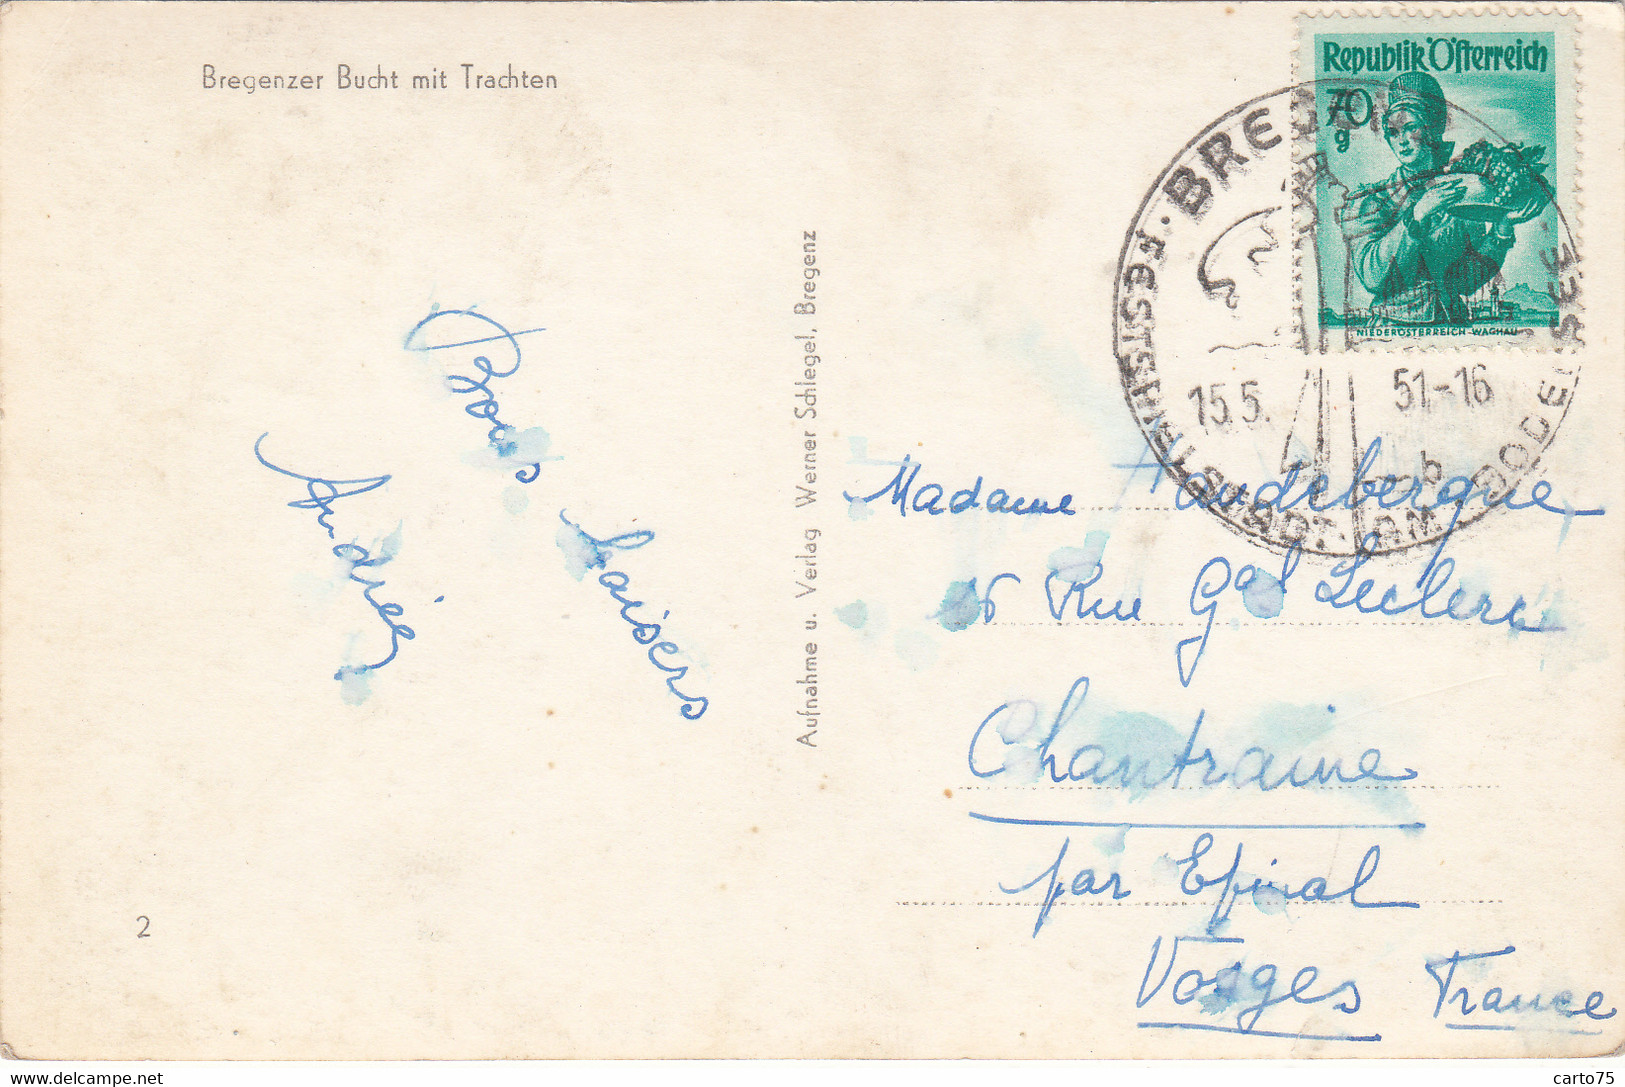 Bregenzer Bucht mit Trachten
Republik Österreich
70
g
NIEDERÖSTERREICH-WACHAU
FESTSPIELSTADT AM BODENSEE
15.5. 51-16
b
Bons baisers
Andrée
Aufnahme u. Verlag Werner Schlegel, Bregenz
Madame Haudebergue
16 Rue Gal Leclerc
Chantraine
par Epinal
Vosges France
2
www.delcampe.net
carto75